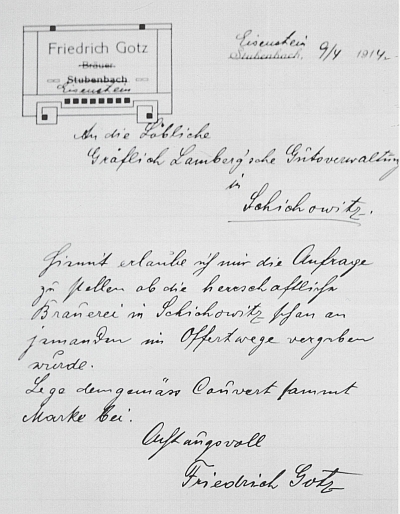 Friedrich Gotz
Bräuer
Stubenbach
Eisenstein
Eisenstein
Stubenbach, 9/4 1914
An die Löbliche
Gräflich Lamberg'sche Gutsverwaltung
in
Schichowitz.
Hiemit erlaube ich mir die Anfrage
zu stellen ob die herrschaftliche
Brauerei in Schichowitz schon an
jemanden im Offertwege vergeben
wurde.
Lege demgemäss Couvert sammt
Marke bei.
Achtungsvoll
Friedrich Gotz